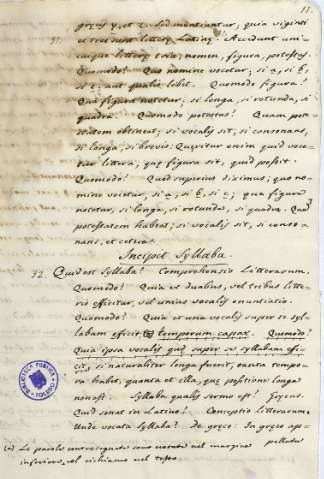 11
græcos y, et z. Sed mentiantur, quia viginti
et tres sunt litteræ Latinæ. Accidunt uni-
31. cuique litteræ tria, nomen, figura, potestas.
Quomodo? Quo nomine vocetur, si a, si b,
si c, aut qualis libet. Quomodo figura?
Qua figura notetur, si longa, si rotunda, si
quadra. Quomodo potestas? Quam pote-
statem obtineat; si vocalis sit, si consonans,
si longa, si brevis. Quæritur enim quid voce-
tur littera, quæ figura sit, quid possit.
Quomodo? Quod superius diximus; quo no-
mine vocetur, si a, si b, si c; qua figura
notetur, si longa, si rotunda, si quadra. Quam
potestatem habeat, si vocalis sit, si conso-
nans, et cetera.
Incipit Syllaba.
32. Quid est Syllaba? Comprehensio Litterarum.
Quomodo? Quia ex duabus, vel tribus litte-
ris efficitur, vel unius vocalis enunciatio.
Quomodo? Quia et una vocalis super se syl-
labam efficit temporum capax. Quomodo?
Quia ipsa vocalis quæ super se syllabam effi-
cit, si naturaliter longa fuerit, tanta tempo-
ra habet, quanta et illa, quæ positione longa
Syllaba qualis sermo est? Græcus.
Quid sonat in Latino? Conceptio Litterarum.
Unde vocata Syllaba? De græco: In græco ap-
pellata
(a) Le parole contrasegnate sono notate nel margine
inferiore, col richiamo nel testo.
BIBLIOTECA PUBLICA TOLEDO